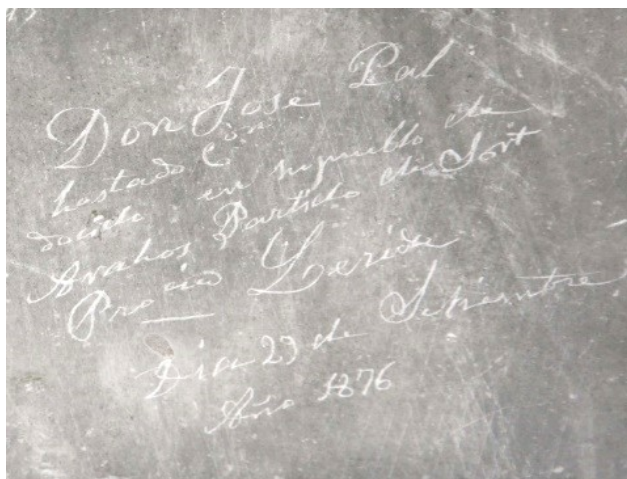 Don Jose Pal
hostado Con
docido en su pueblo de
Arahos Partido de Sort
Pro cia Lerida
Dia 23 de Setiembre
Año 1876